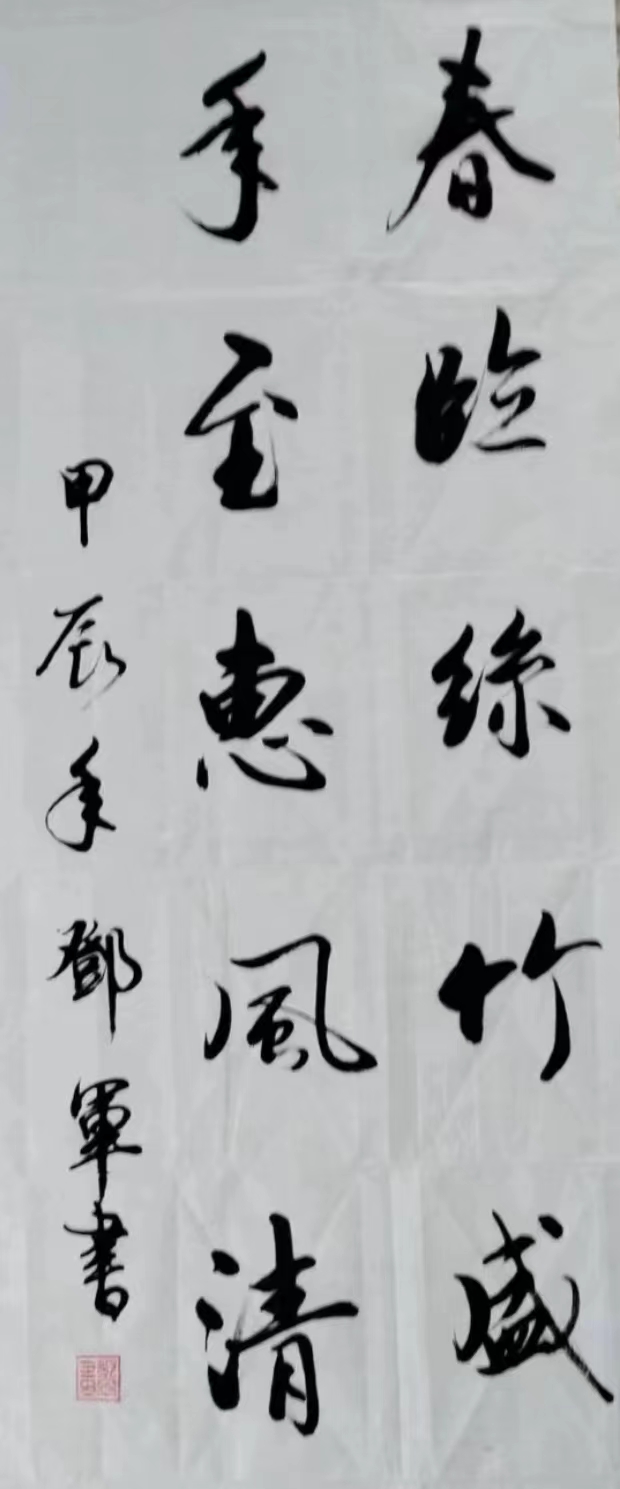 春臨絲竹盛
年至惠風清
甲辰年鄧軍書